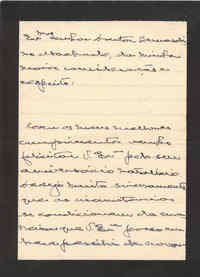 Exmo Senhor Doutor Bernardi
no Machado, da minha
maior consideração e
respeito:
Com os meus melhores
cumprimentos venho
felicitar V. Exa pelo seu
aniversário natalício
desejo muito sinceramente
que as circunstancias
se condicionem de ma
neira que V. Exa possa em
breve